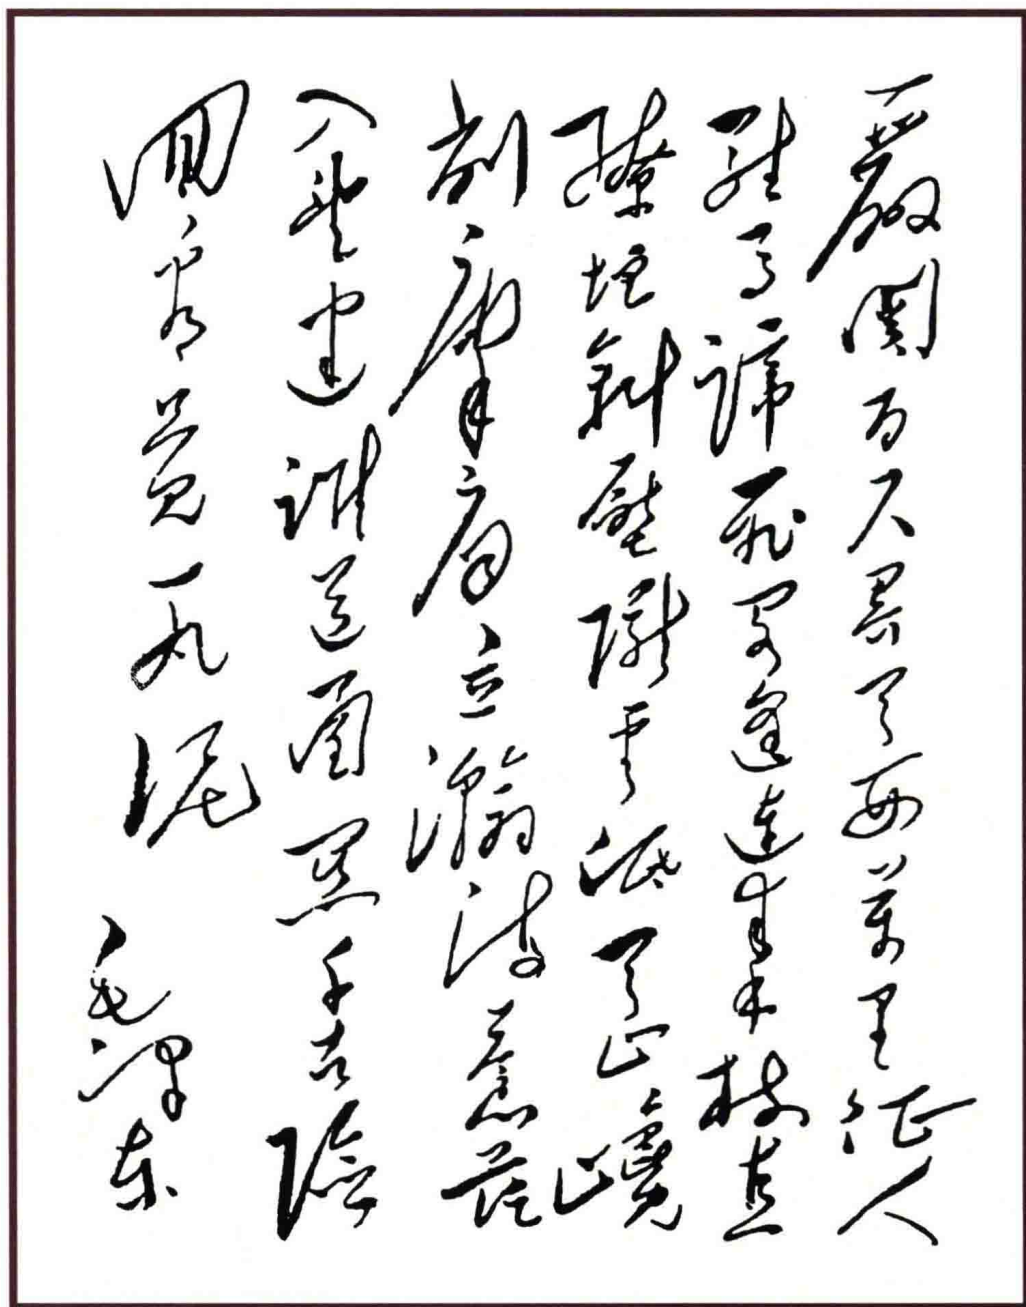 嚴関百尺界天西萬里征人
駐馬蹄飛閣遙連秦樹直
繚垣斜壓隴雲低天山巉
削摩肩立瀚海蒼茫
入望迷誰道函關千古險
回看只見一丸泥
毛澤东